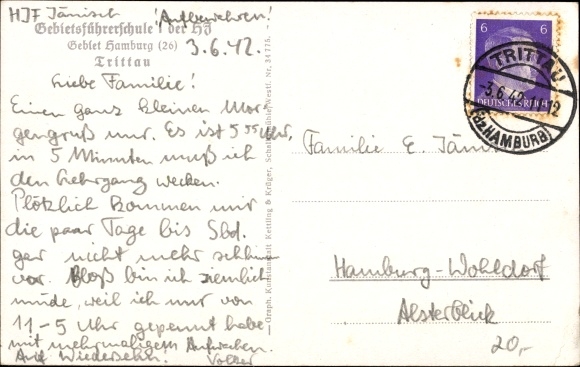 HJF Jänisch Aufbewahren!
Gebietsführerschule der HJ
Gebiet Hamburg (26)
Trittau
3.6.42.
Liebe Familie!
Einen ganz kleinen Mor-
gengruß nur. Es ist 5 55 Uhr,
in 5 Minuten muß ich
den Lehrgang wecken.
Plötzlich kommen mir
die paar Tage bis Sbd.
gar nicht mehr schlimm
vor. Bloß bin ich ziemlich
müde, weil ich nur von
11-5 Uhr gepennt habe
mit mehrmaligem Aufwachen.
Auf Wiedersehn! Volker
Graph. Kunstanstalt Kettling & Krüger, Schalksmühle/Westf. Nr.
6 6
DEUTSCHES REICH
TRITTAU
-3.6.42
(BZ HAMBURG)
Familie E.
Hamburg-Wohldorf
Alsterblick
20,-